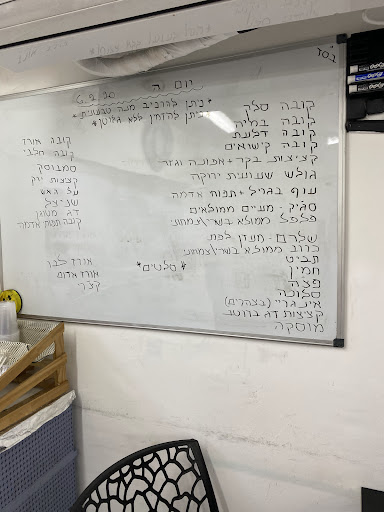 בס"ד
יום ה 6.8.20
*ניתן להרכיב מנה טבעונית*
*ניתן להזמין ללא גלוטן*
קובה סלק
קובה במיה
קובה דלעת
קובה קישואים
קציצות בקר+אפונה וגזר
גולש שעועית ירוקה
עוף בגריל+תפוח אדמה
סגיק - מעיים ממולאים
פלפל ממולא בשרי\צמחוני
שלהם - מעדן לפת
כרוב ממולא בשרי\צמחוני
תבית
חמין
פצה
סלונה
אינגריי (בצהרים)
קציצות דג ברוטב
מוסקה
קובה אורז
קובה חלבי
סמבוסק
קציצות ירק
על האש
שניצל
דג מטוגן
קובה תפוח אדמה
*סלטים*
אורז לבן
אורז אדום
קצ'רי